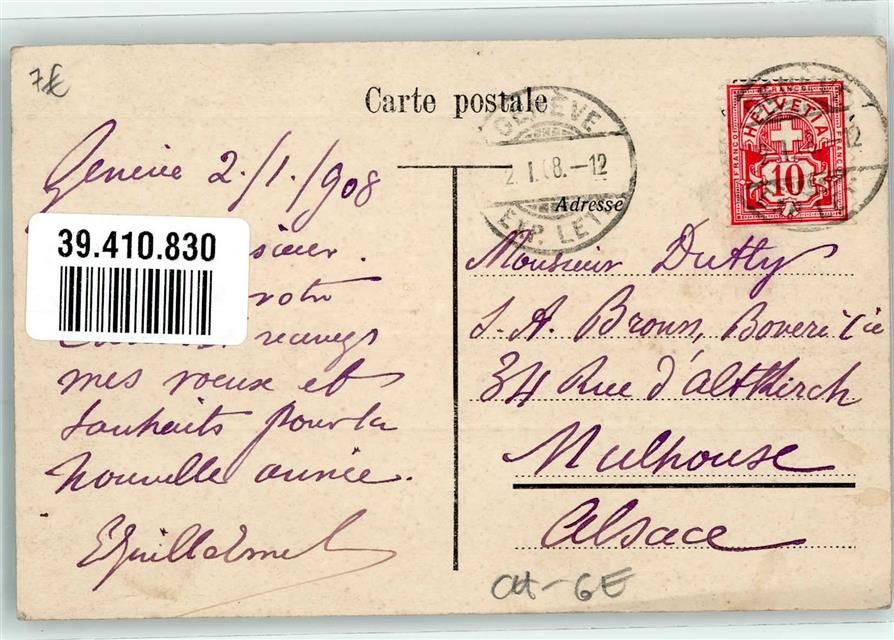 7€
Carte postale
GENÈVE
2.I.08.-12
EXP. LETT
FRANCO
HELVETIA
10
Adresse
Genève 2./1./908
39.410.830
votre
recevez
mes voeux et
souhaits pour la
nouvelle année.
Monsieur Dutty
S. A. Brown, Boveri & Cie
34 Rue d'Altkirch
Mulhouse
Alsace
CH-GE